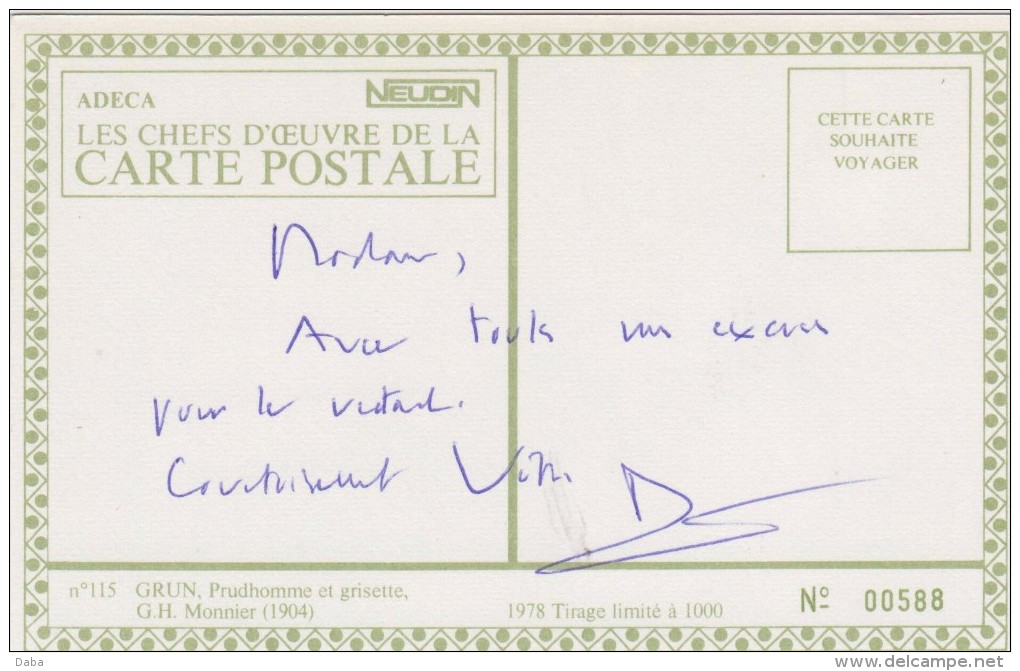 ADECA
NEUDIN
LES CHEFS D'ŒUVRE DE LA
CARTE POSTALE
CETTE CARTE
SOUHAITE
VOYAGER
Madame,
Avec toutes mes excuses
pour le retard.
Courtoisement Vôtre
n°115 GRUN, Prudhomme et grisette,
G.H. Monnier (1904)
1978 Tirage limité à 1000
Nº 00588
Daba
www.delcampe.net